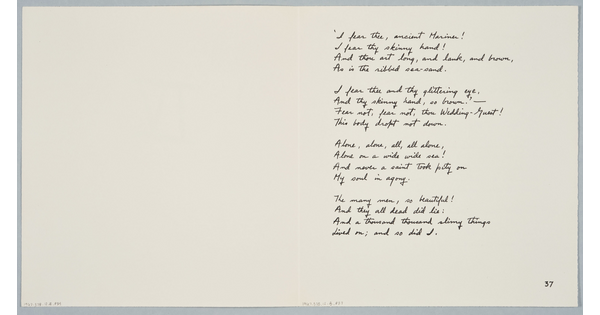 'I fear thee, ancient Mariner!
I fear thy skinny hand!
And thou art long, and lank, and brown,
As is the ribbed sea-sand.
I fear thee and thy glittering eye,
And thy skinny hand, so brown.'—
Fear not, fear not, thou Wedding-Guest!
This body dropt not down.
Alone, alone, all, all alone,
Alone on a wide wide sea!
And never a saint took pity on
My soul in agony.
The many men, so beautiful!
And they all dead did lie:
And a thousand thousand slimy things
Lived on; and so did I.
37